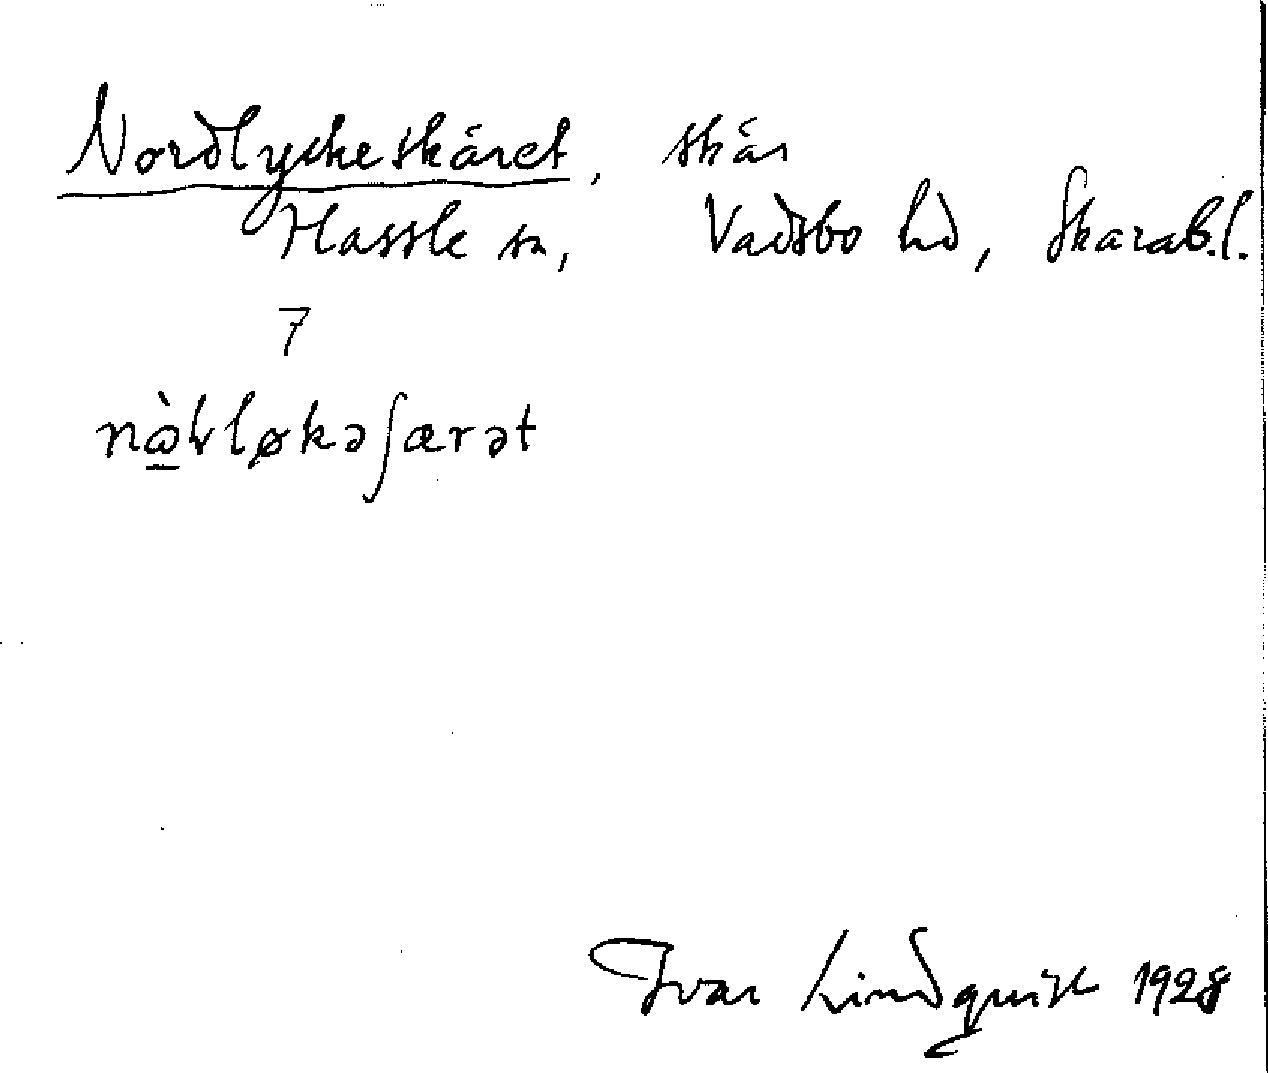 Nordlyckeskäret, skär
Hassle sn, Vadsbo hd, Skarab.l.
7
Ivar Lindquist 1928